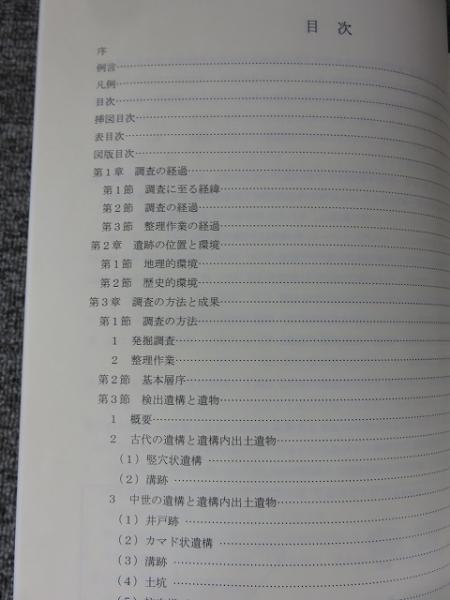 目次
序
例言
凡例
目次
挿図目次
表目次
図版目次
第1章 調査の経過
第1節 調査に至る経緯
第2節 調査の経過
第3節 整理作業の経過
第2章 遺跡の位置と環境
第1節 地理的環境
第2節 歴史的環境
第3章 調査の方法と成果
第1節 調査の方法
1 発掘調査
2 整理作業
第2節 基本層序
第3節 検出遺構と遺物
1 概要
2 古代の遺構と遺構内出土遺物
(1)竪穴状遺構
(2)溝跡
3 中世の遺構と遺構内出土遺物
(1)井戸跡
(2)カマド状遺構
(3)溝跡
(4)土坑